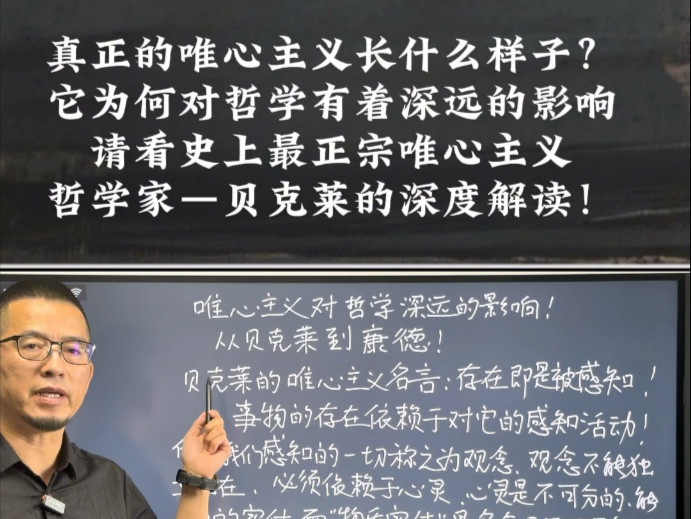 真正的唯心主义长什么样子?
它为何对哲学有着深远的影响
请看史上最正宗唯心主义
哲学家—贝克莱的深度解读!
唯心主义对哲学深远的影响!
从贝克莱到康德!
贝克莱的唯心主义名言:存在即是被感知!
事物的存在依赖于对它的感知活动!
我们感知的一切称之为观念、观念不能独
在、必须依赖于心灵、心灵是不可分的、能